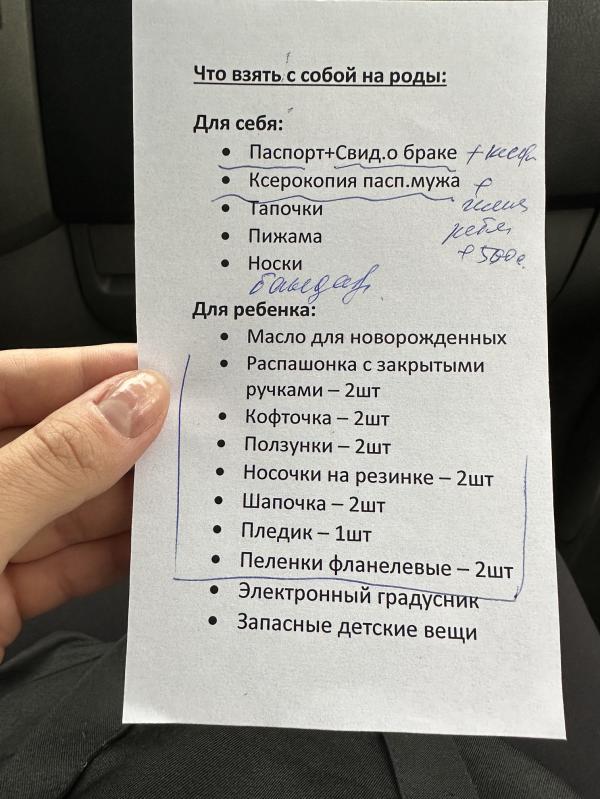 Что взять с собой на роды:
Для себя:
• Паспорт+Свид.о браке
• Ксерокопия пасп.мужа
• Тапочки
• Пижама
• Носки
бандаж
Для ребенка:
• Масло для новорожденных
• Распашонка с закрытыми
ручками – 2шт
• Кофточка – 2шт
• Ползунки – 2шт
• Носочки на резинке – 2шт
• Шапочка – 2шт
• Пледик – 1шт
• Пеленки фланелевые – 2шт
• Электронный градусник
• Запасные детские вещи